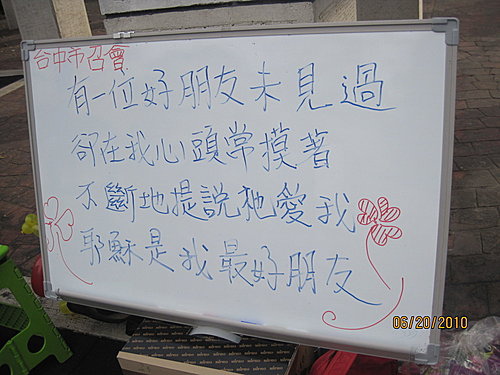 台中市召會
有一位好朋友未見過
卻在我心頭常摸著
不斷地提說祂愛我
耶穌是我最好朋友
06/20/2010